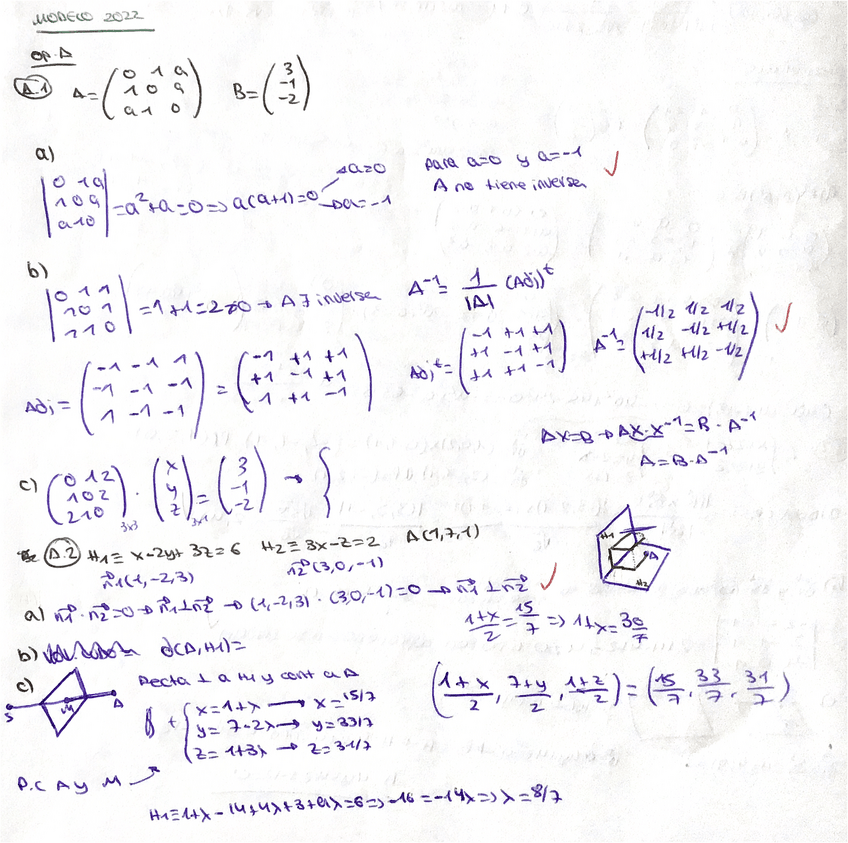 MODELO 2022
OP. A
A.1 A = ( 0 1 a ; 1 0 a ; a 1 0 ) B = ( 3 ; -1 ; -2 )
a)
| 0 1 a ; 1 0 a ; a 1 0 | = a² + a = 0 => a(a+1) = 0 → a=0 → a=-1
para a=0 y a=-1 ✓
A no tiene inversa
b)
| 0 1 1 ; 1 0 1 ; 1 1 0 | = 1+1 = 2 ≠ 0 → A ∃ inversa A⁻¹ = 1/|A| (Adj)ᵗ
Adj = ( -1 -1 1 ; -1 -1 -1 ; 1 -1 -1 ) = ( -1 +1 +1 ; +1 -1 +1 ; 1 +1 -1 ) Adjᵗ = ( -1 +1 +1 ; +1 -1 +1 ; +1 +1 -1 ) A⁻¹ = ( -1/2 1/2 1/2 ; 1/2 -1/2 +1/2 ; +1/2 +1/2 -1/2 ) ✓
AX = B → AX·X⁻¹ = B · A⁻¹
A = B·A⁻¹
c) ( 0 1 2 ; 1 0 2 ; 2 1 0 ) 3x3 · ( x ; y ; z ) 3x1 = ( 3 ; -1 ; -2 ) → {
A.2 H1 ≡ x-2y+3z=6 H2 ≡ 3x-z=2 A(1,7,1)
n1(1,-2,3) n2(3,0,-1)
H1 A H2
a) n1 · n2 = 0 → n1 ⊥ n2 → (1,-2,3) · (3,0,-1) = 0 → n1 ⊥ n2 ✓
(1+x)/2 = 15/7 => 1+x = 30/7
b) d(A,H1) =
c) Recta ⊥ a H1 y cont a A
S M A
t { x = 1+λ → x = 15/7
y = 7-2λ → y = 33/7
z = 1+3λ → z = 31/7
( (1+x)/2 , (7+y)/2 , (1+z)/2 ) = ( 15/7 , 33/7 , 31/7 )
P.C A y M
H1 ≡ 1+λ - 14+4λ+3+9λ = 6 => -16 = -14λ => λ = 8/7